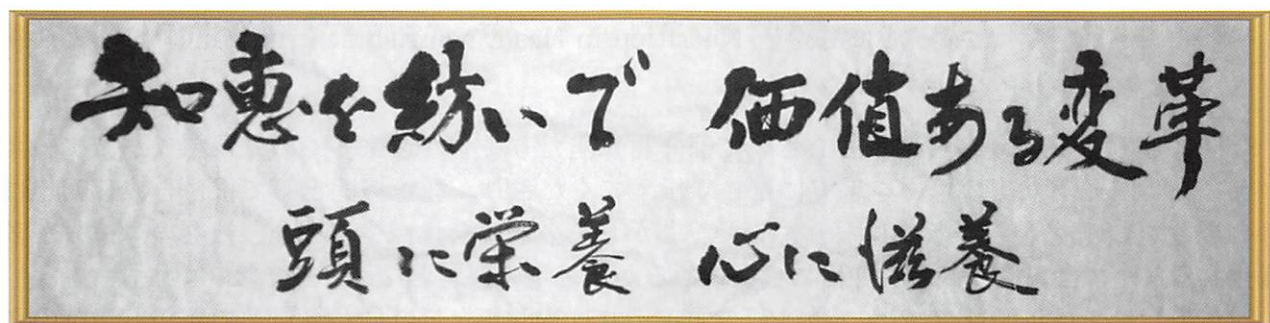 知恵を紡いで 価値ある変革
頭に栄養 心に滋養